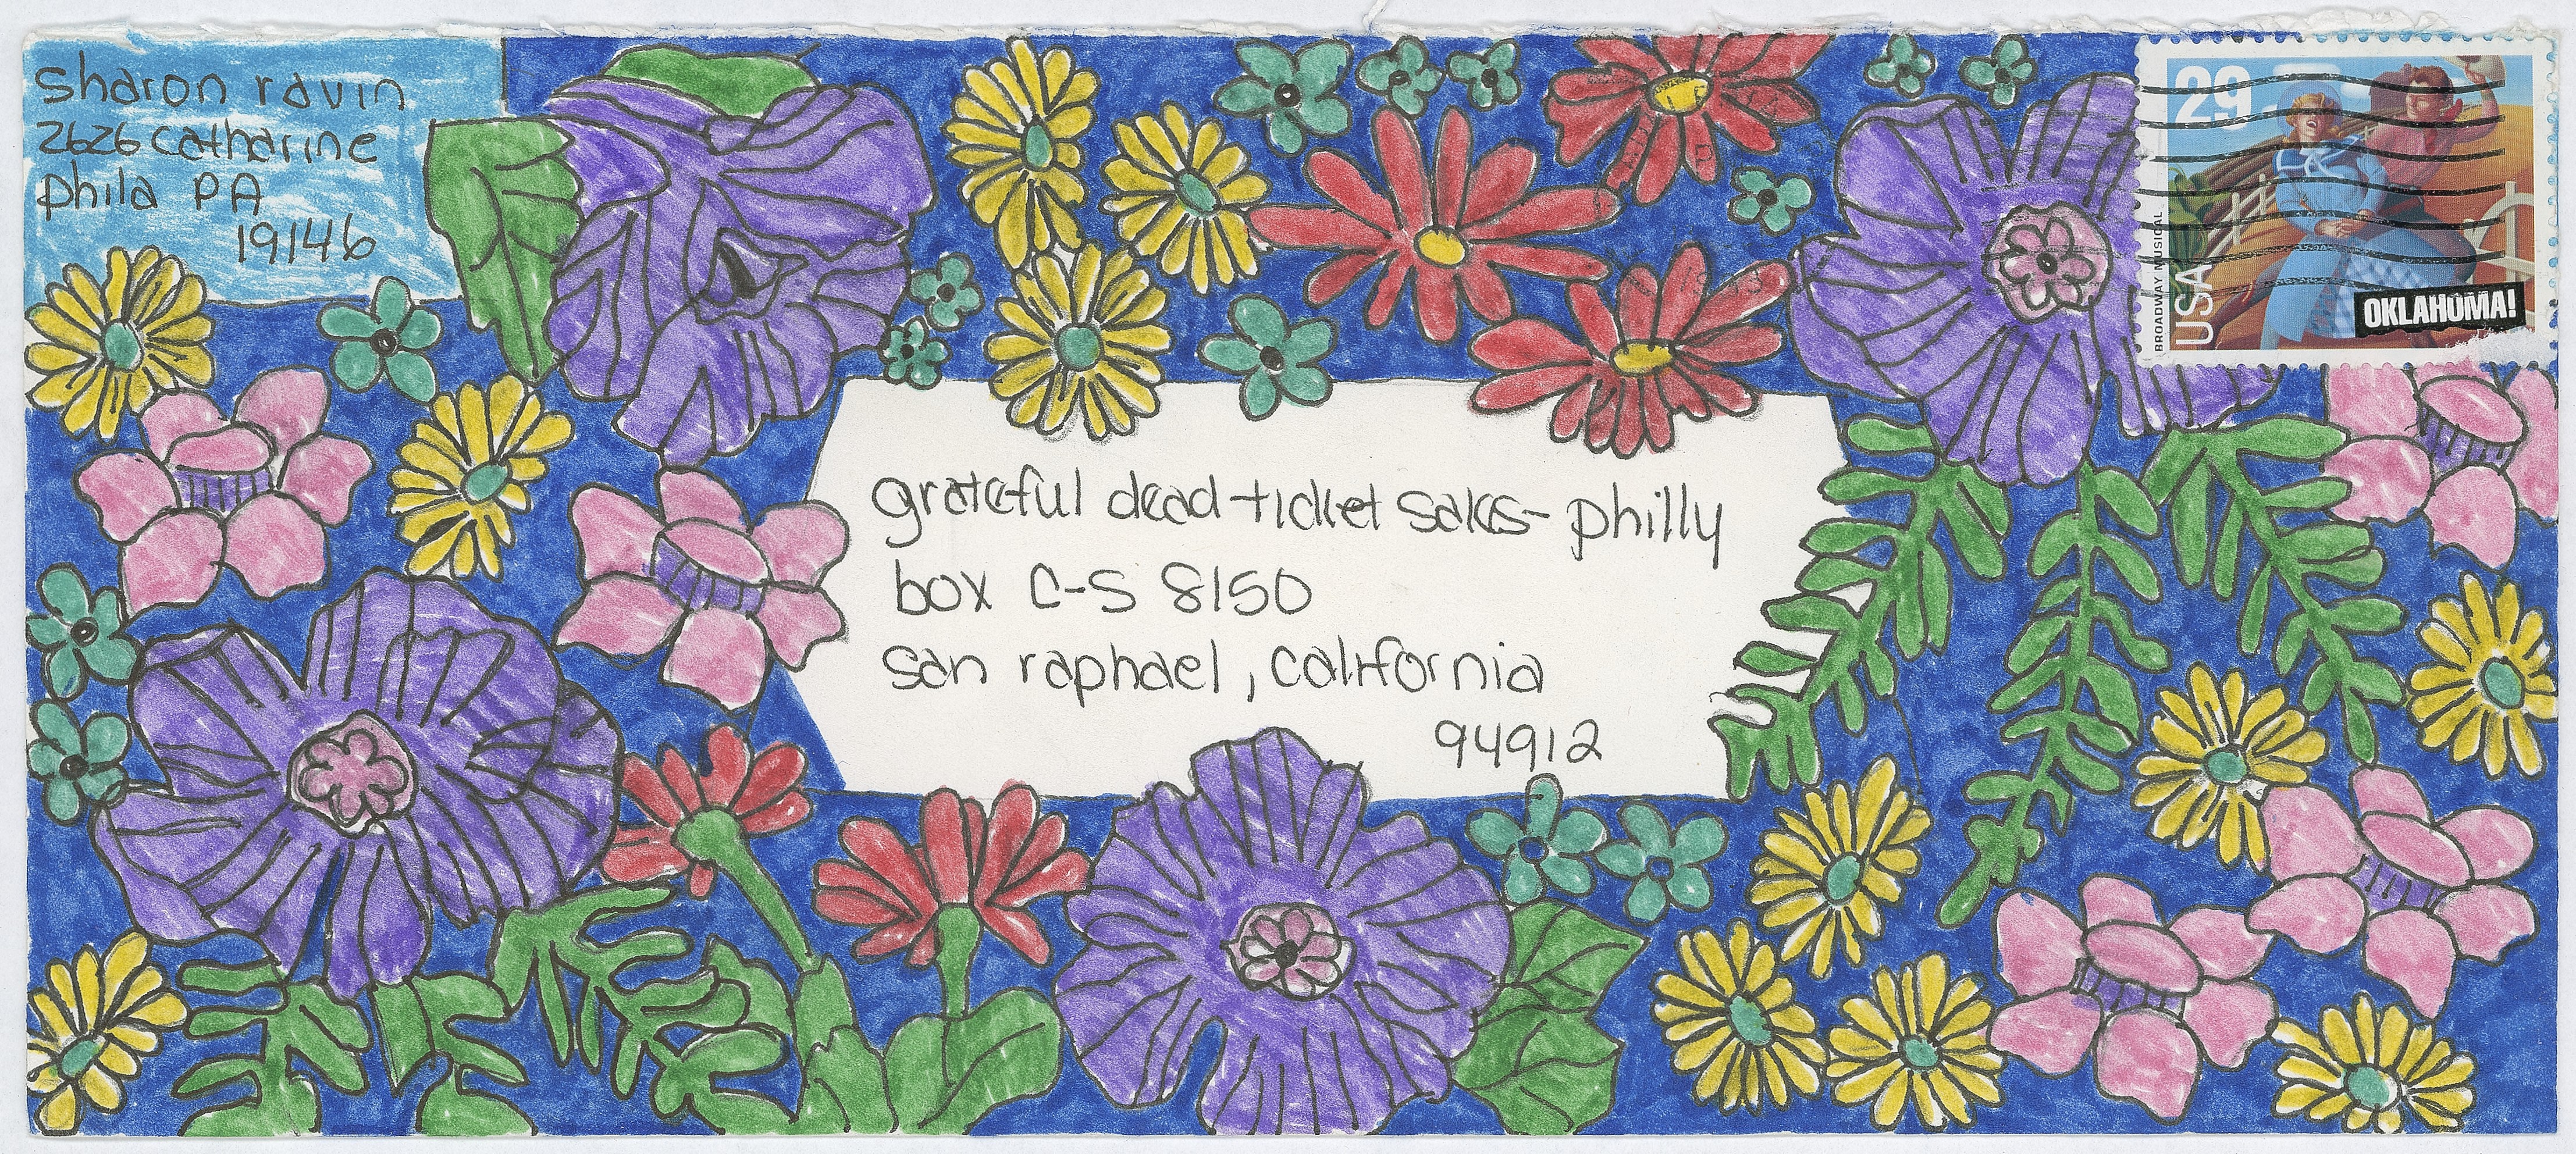 sharon ravin
2626 catharine
phila PA
19146
29
BROADWAY MUSICAL
USA
OKLAHOMA!
grateful dead ticket sales - philly
box C-S 8150
san raphael, california
94912